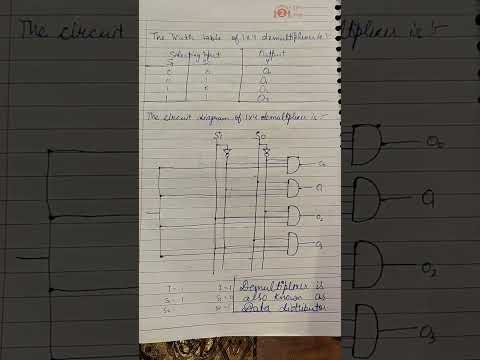 The truth table of 1x4 demultiplexer is :-
Selecting Input Output
S1 S0 Y
0 0 O0
0 1 O1
1 0 O2
1 1 O3
The circuit diagram of 1x4 demultiplexer is :-
S1 S0
O0
O1
O2
O3
Demultiplexer is
also known as
Data distributor
The circuit
O0
O2
O3